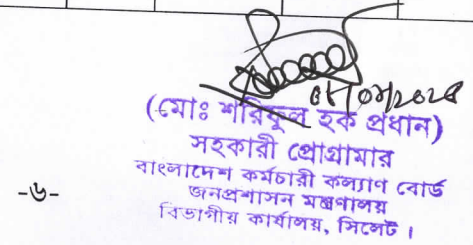 (মোঃ শরিফুল হক প্রধান)
সহকারী প্রোগ্রামার
বাংলাদেশ কর্মচারী কল্যাণ বোর্ড
জনপ্রশাসন মন্ত্রণালয়
বিভাগীয় কার্যালয়, সিলেট।
-৬-